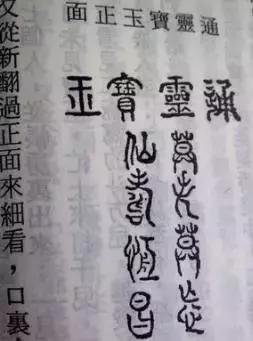 通靈寶玉正面
通靈寶玉
莫失莫忘
仙壽恆昌
又從新翻過正面來細看，口裏